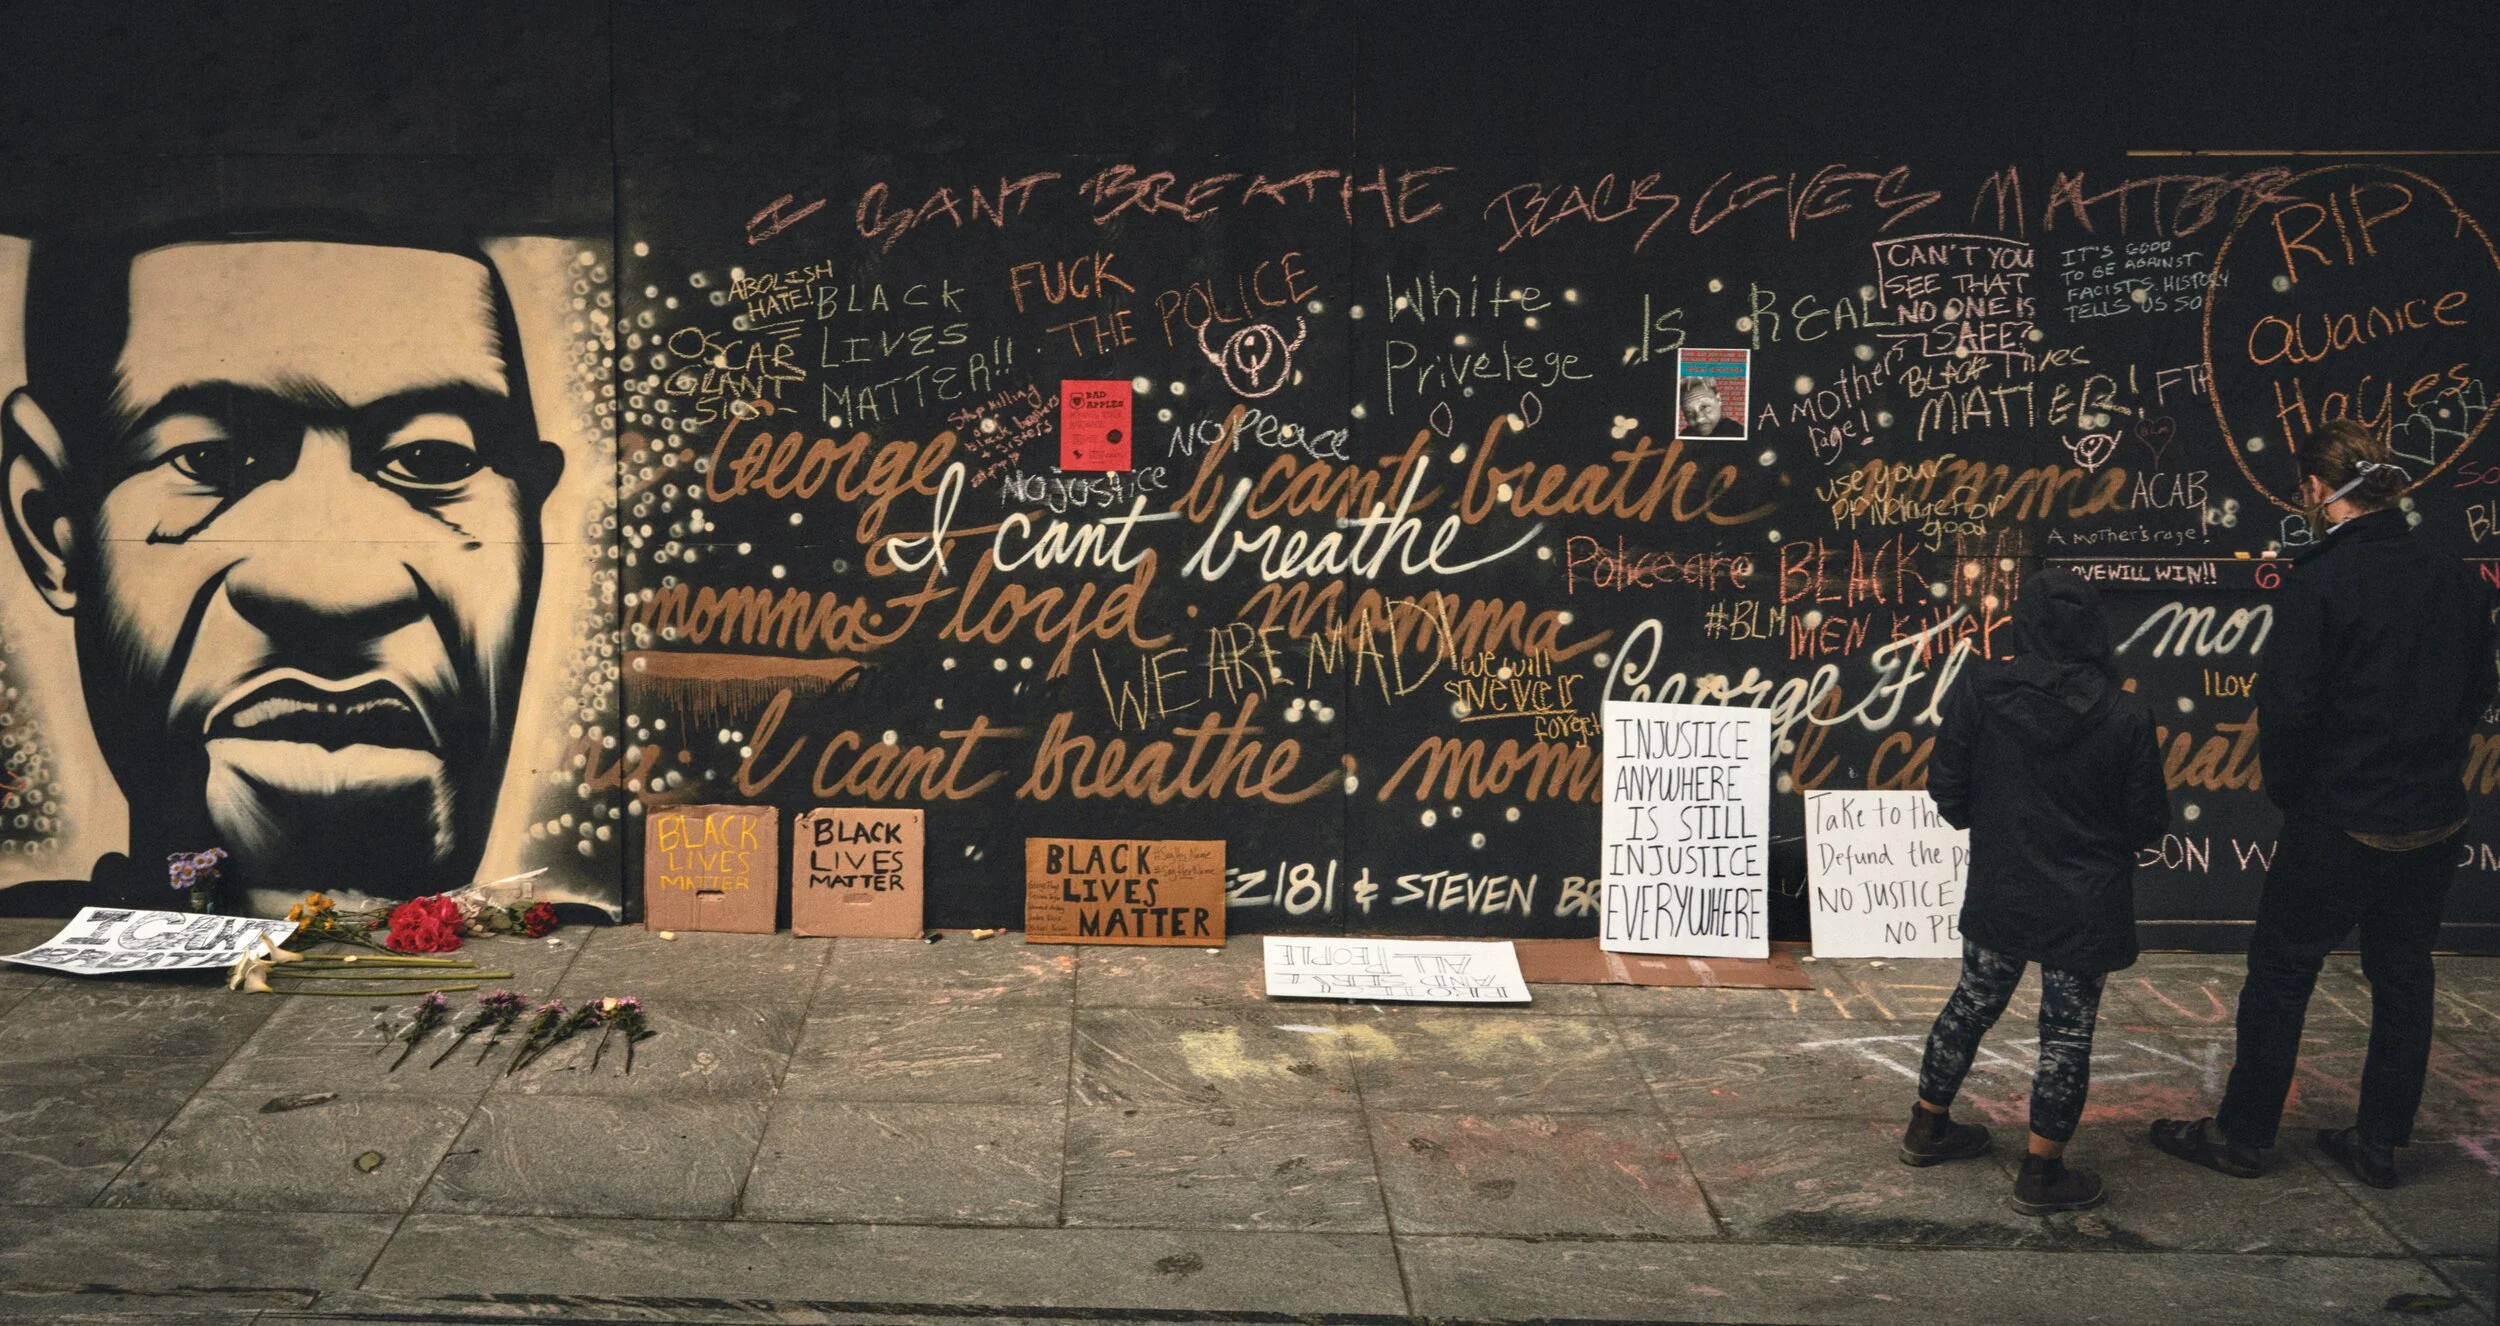 I CANT BREATHE BLACK LIVES MATTER
RIP
QUANICE
HAYES
ABOLISH
HATE!
BLACK
LIVES
MATTER!!
OSCAR
GRANT
FUCK
THE POLICE
White
Privelege
Is REAL
CAN'T YOU
SEE THAT
NO ONE IS
SAFE?
IT'S GOOD
TO BE AGAINST
FACISTS. HISTORY
TELLS US SO
A MOTHER'S
rage!
BLACK LIVES
MATTER! FTP
BLM
BAD
APPLES
Stop killing
our
black brothers
+ sisters
NO PEACE
NO JUSTICE
George I cant breathe momma
I cant breathe
use your
privelage for
good
ACAB
A MOTHER'S rage!
momma Floyd momma
Police are
BLACK
MEN Killer
#BLM
LOVE WILL WIN!!
WE ARE MAD!
we will
never
forget
George Fl
mom
I LOV
I cant breathe mom I ca
BLACK
LIVES
MATTER
BLACK
LIVES
MATTER
BLACK
LIVES
MATTER
#SayHisName
#SayHerName
EZ181 & STEVEN BR
INJUSTICE
ANYWHERE
IS STILL
INJUSTICE
EVERYWHERE
Take to the
Defund the po
NO JUSTICE
NO PE
SON W
I CANT
BREATHE
PROTECT
AND SERVE
ALL PEOPLE
THEY